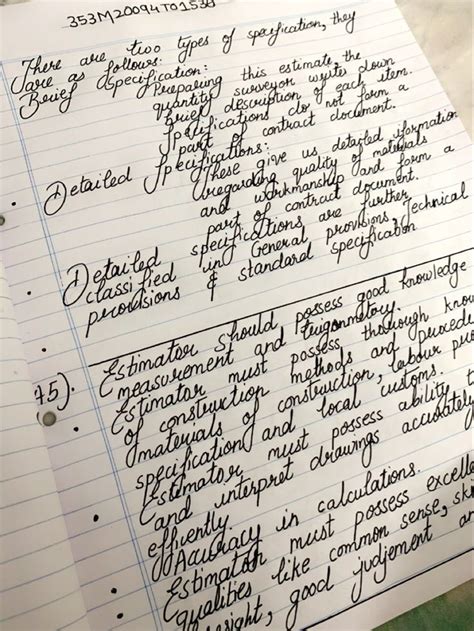 353M20094T01530
There are two types of specification, they
are as follows:
Brief specification: Preparing this estimate, the
quantity surveyor writes down
brief description of each item.
Specifications do not form a
part of contract document.
Detailed Specifications:
These give us detailed information
regarding quality of materials
and workmanship and form a
part of contract document.
Detailed specifications are further
classified in General provisions, Technical
provisions & standard specification
Estimator should possess good knowledge
measurement and
Estimator must possess thorough know
of construction methods and procedu
materials of construction, labour
specification and local customs.
Estimator must possess ability t
and interpret drawings accurately
Accuracy in calculations.
Estimator must possess excelle
qualities like common sense, ski
resight, good judgement an